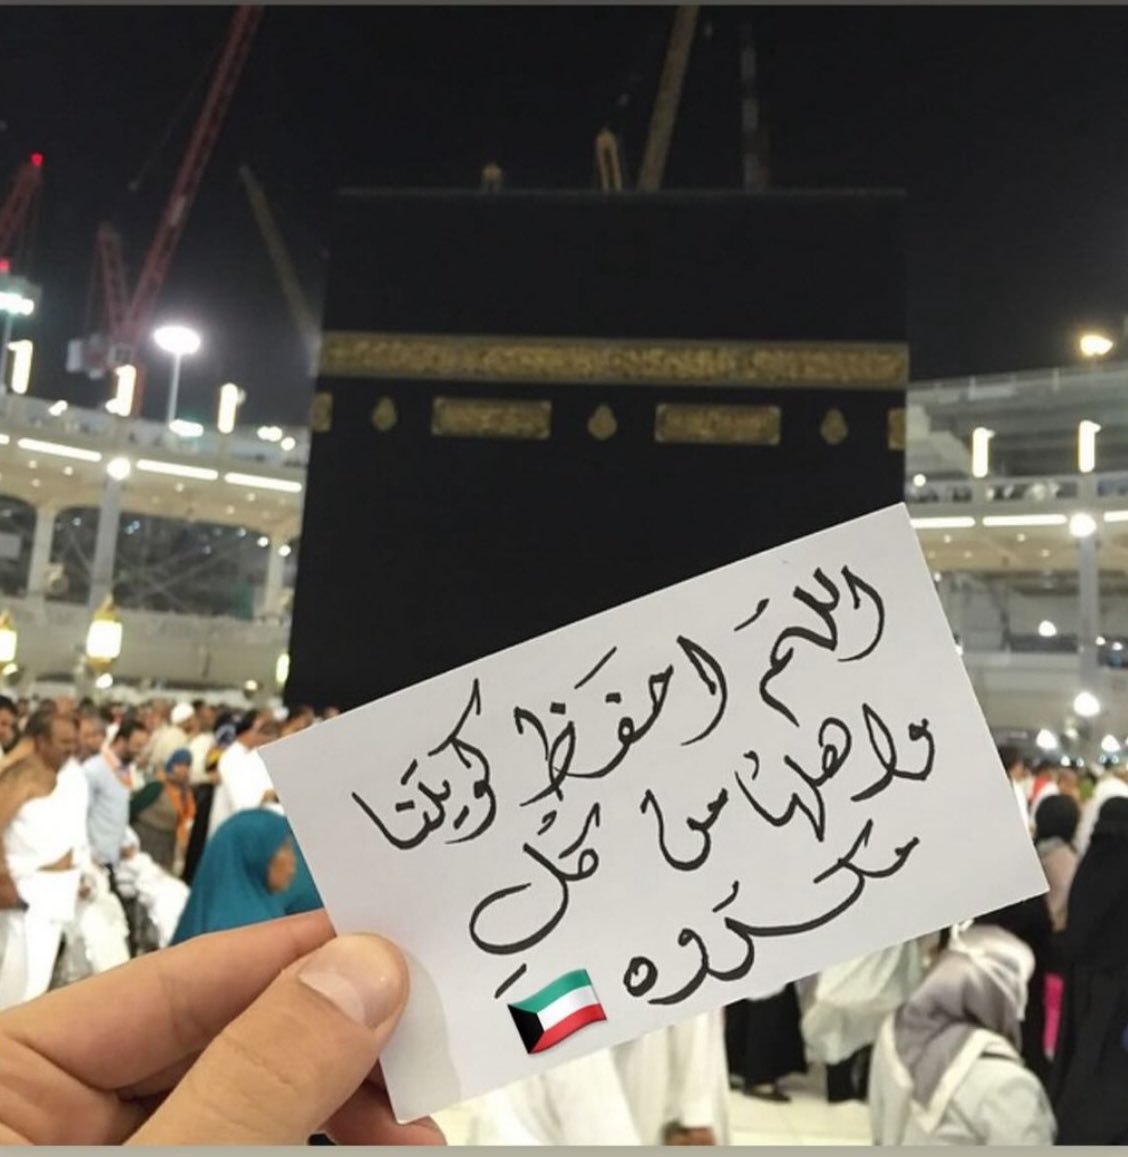 اللهم احفظ كويتنا
واهلها من كل
مكروه